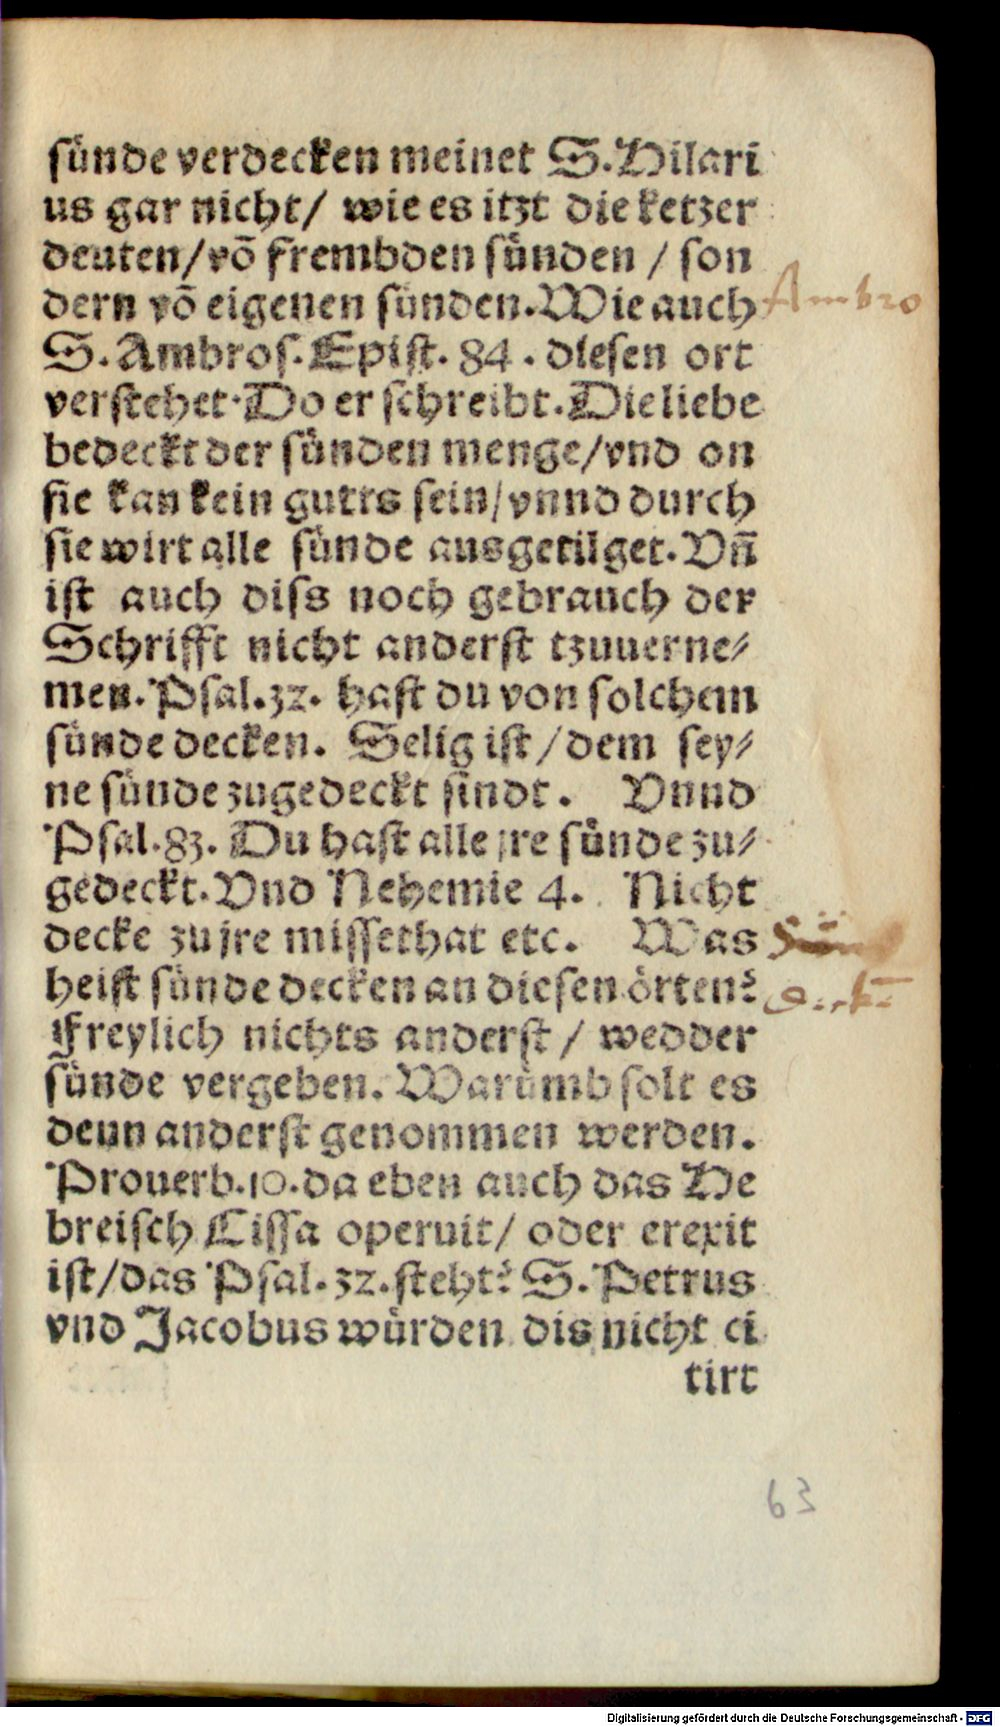 sünde verdecken meinet S. Hilari
us gar nicht/ wie es itzt die ketzer
deuten/võ frembden sünden / son
dern võ eigenen sünden. Wie auch
Ambro
S. Ambros. Epist. 84. diesen ort
verstehet. Do er schreibt. Die liebe
bedeckt der sünden menge/vnd on
sie kan kein gutts sein/vnnd durch
sie wirt alle sünde ausgetilget. Vñ
ist auch diss noch gebrauch der
Schrifft nicht anderst tzuuerne-
men. Psal. 32. hast du von solchem
sünde decken. Selig ist / dem sey-
ne sünde zugedeckt sindt. Vnnd
Psal. 83. Du hast alle jre sünde zu-
gedeckt. Vnd Nehemie 4. Nicht
decke zu jre missethat etc. Was
heist sünde decken an diesen örten?
Freylich nichts anderst / wedder
sünde vergeben. Warümb solt es
denn anderst genommen werden.
Prouerb. 10. da eben auch das He
breisch Cissa operuit/ oder erexit
ist/das Psal. 32. steht? S. Petrus
vnd Jacobus würden dis nicht ci
tirt
63
Digitalisierung gefördert durch die Deutsche Forschungsgemeinschaft - DFG